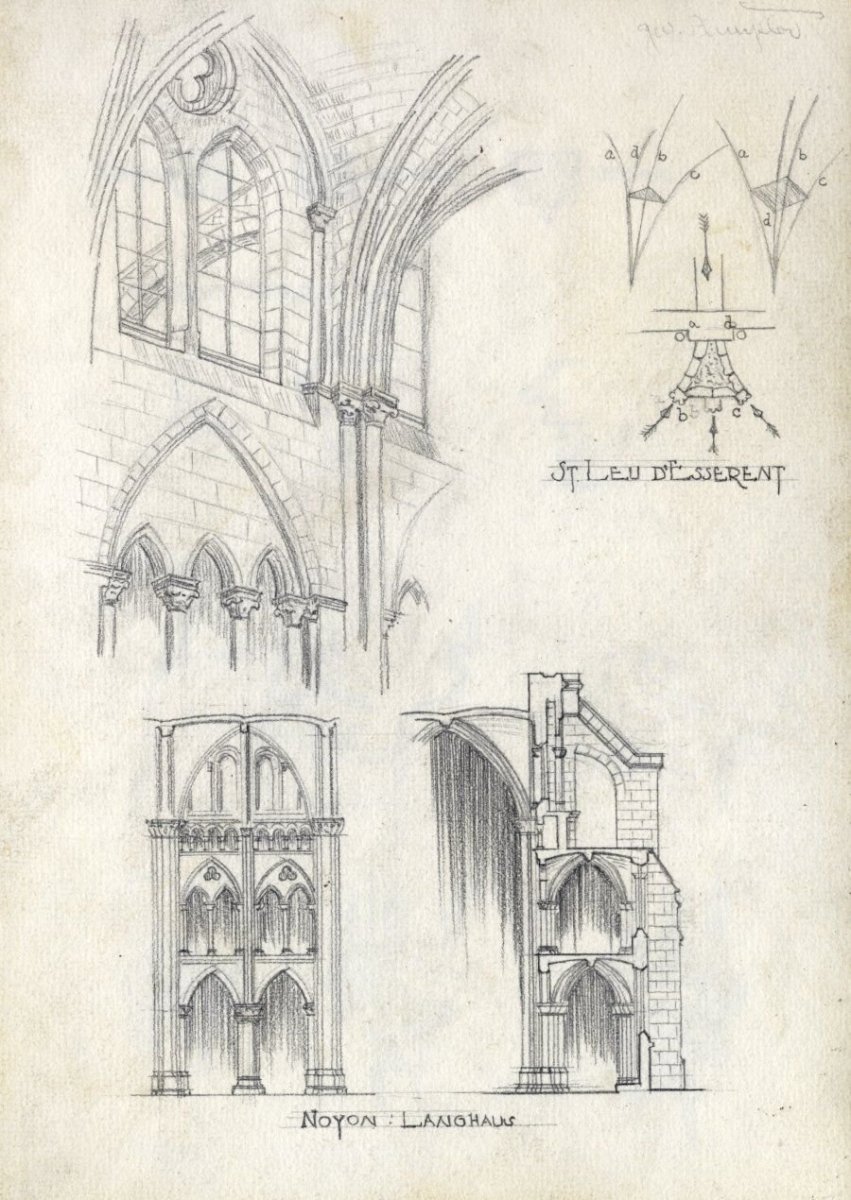 a d b c
a b c d
a d
b b c
ST LEU D'ESSERENT
NOYON : LANGHAUS